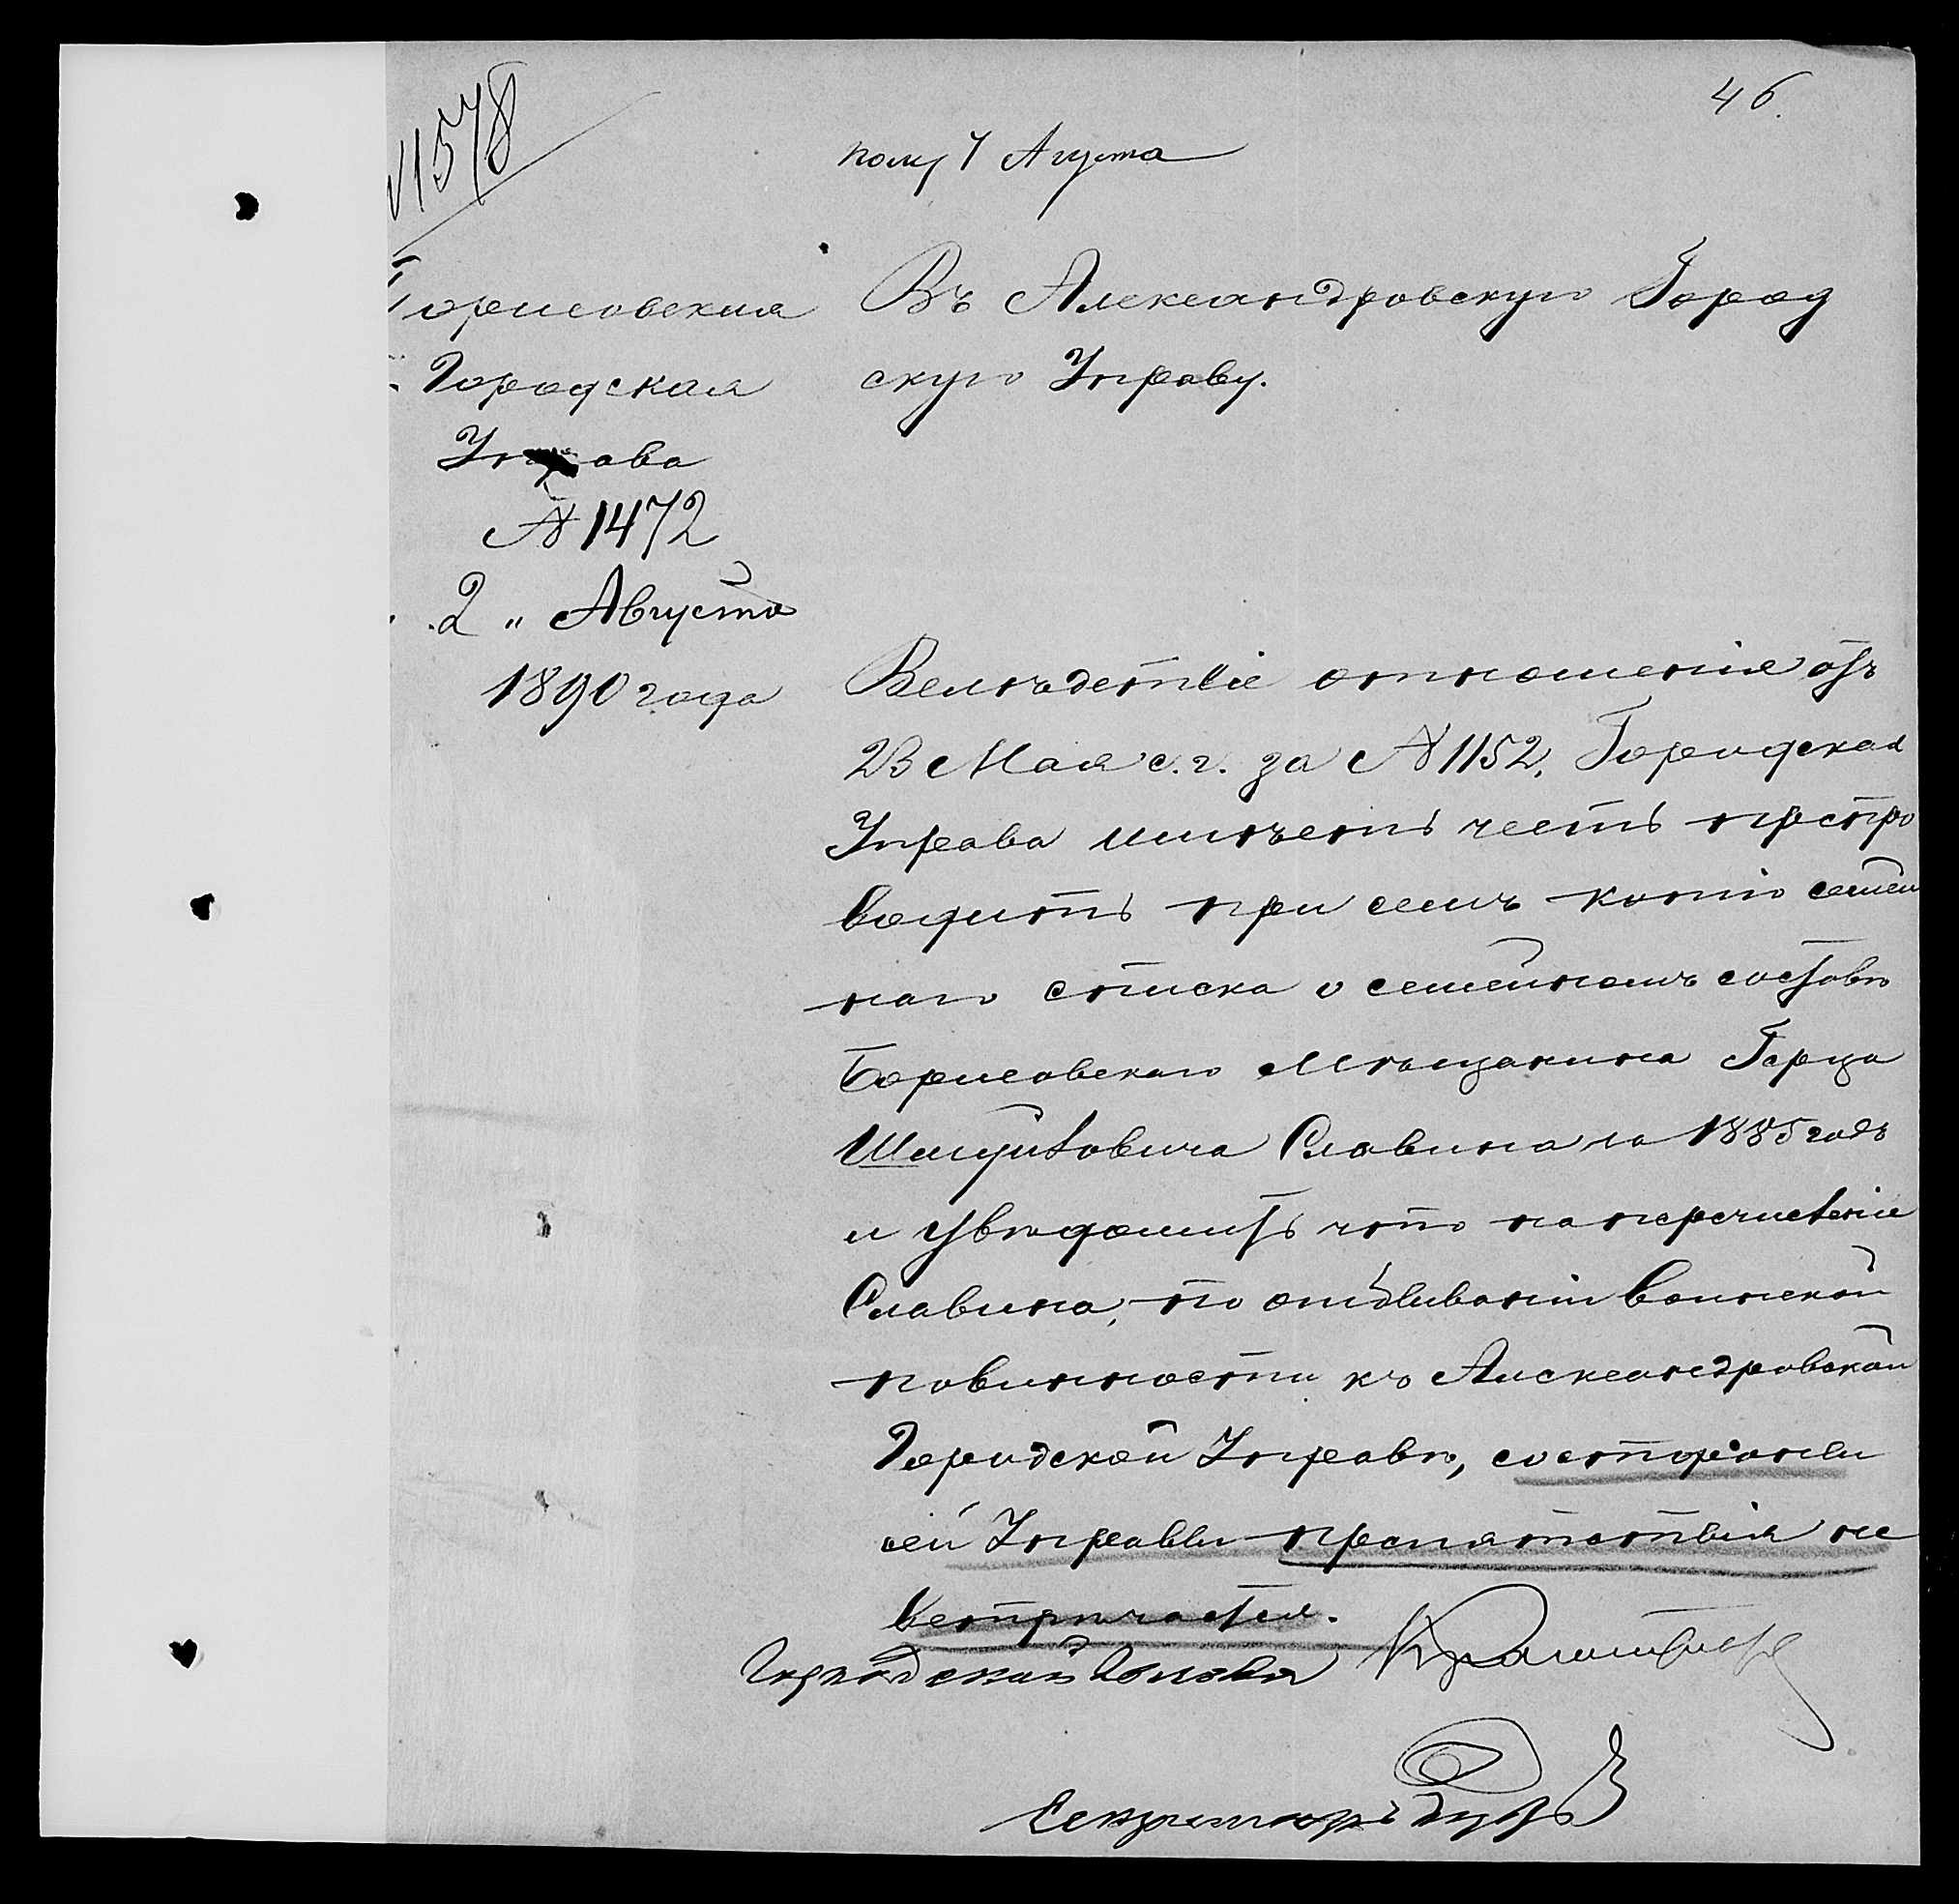 46.
№ 1578
полу 7 Августа
Борисовская
Городская
Управа
№ 1472
2 " Августа
1890 года
Въ Александровскую Город
скую Управу.
Вслѣдствіе отношенія отъ
23 Мая с. г. за № 1152, Городская
Управа имѣетъ честь препро
водить при семъ копію семей
наго списка о семейномъ составѣ
Борисовскаго Мѣщанина Герца
Шмуйловича Славина за 1885 годъ
и увѣдомить что на перечисленіе
Славина, по отбываніи воинской
повинности къ Александровской
Городской Управѣ, со стороны
сей Управы препятствія не
встрѣчается.
Городской Голова
Секретарь